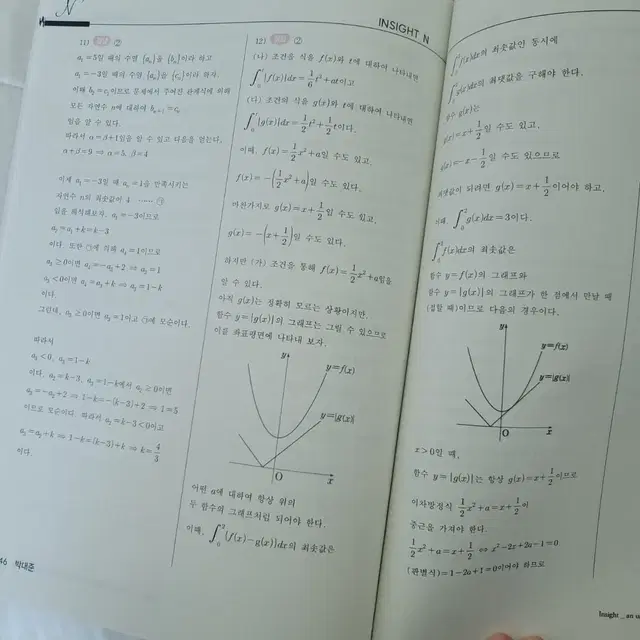 INSIGHT N
11) ②
a₁=5일 때의 수열 {aₙ}을 {bₙ}이라 하고
a₁=-3일 때의 수열 {aₙ}을 {cₙ}이라 하자.
이때 b₂=c₁이므로 문제에서 주어진 관계식에 의해
모든 자연수 n에 대하여 bₙ₊₁=cₙ
임을 알 수 있다.
따라서 α=β+1임을 알 수 있고 다음을 얻는다.
α+β=9 ⇒ α=5, β=4
이제 a₁=-3일 때 aₙ=1을 만족시키는
자연수 n의 최솟값이 4 …… ㉠
임을 해석해보자. a₁=-3이므로
a₂=a₁+k=k-3
이다. 또한 ㉠에 의해 a₄=1이므로
a₃≥0이면 a₄=-a₃+2 ⇒ a₃=1
a₃<0이면 a₄=a₃+k ⇒ a₃=1-k
이다.
그런데, a₃≥0이면 a₃=1이고 ㉠에 모순이다.
따라서
a₃<0, a₃=1-k
이다. a₂=k-3, a₃=1-k에서 a₂≥0이면
a₃=-a₂+2 ⇒ 1-k=-(k-3)+2 ⇒ 1=5
이므로 모순이다. 따라서 a₂=k-3<0이고
a₃=a₂+k ⇒ 1-k=(k-3)+k ⇒ k=4/3
이다.
46 박대준
12) ②
(나) 조건을 식을 f(x)와 t에 대하여 나타내면
∫₀ᵗ|f(x)|dx=1/6t³+at이고
(다) 조건의 식을 g(x)와 t에 대하여 나타내면
∫₀ᵗ|g(x)|dx=1/2t²+1/2t이다.
이때, f(x)=1/2x²+a일 수도 있고,
f(x)=-(1/2x²+a)일 수도 있다.
마찬가지로 g(x)=x+1/2일 수도 있고,
g(x)=-(x+1/2)일 수도 있다.
하지만 (가) 조건을 통해 f(x)=1/2x²+a임을
알 수 있다.
아직 g(x)는 정확히 모르는 상황이지만,
함수 y=|g(x)|의 그래프는 그릴 수 있으므로
이를 좌표평면에 나타내 보자.
y
y=f(x)
y=|g(x)|
O
x
어떤 a에 대하여 항상 위의
두 함수의 그래프처럼 되어야 한다.
이때, ∫₀²{f(x)-g(x)}dx의 최솟값은
f(x)dx의 최솟값인 동시에
g(x)dx의 최댓값을 구해야 한다.
함수 g(x)는
g(x)=x+1/2일 수도 있고,
g(x)=-x-1/2일 수도 있으므로
최댓값이 되려면 g(x)=x+1/2이어야 하고,
이때, ∫₀²g(x)dx=3이다.
∫₀²f(x)dx의 최솟값은
함수 y=f(x)의 그래프와
함수 y=|g(x)|의 그래프가 한 점에서 만날 때
(접할 때)이므로 다음의 경우이다.
y
y=f(x)
y=|g(x)|
O
x
x>0일 때,
함수 y=|g(x)|는 항상 g(x)=x+1/2이므로
이차방정식 1/2x²+a=x+1/2이
중근을 가져야 한다.
1/2x²+a=x+1/2 ⇔ x²-2x+2a-1=0
(판별식)=1-2a+1=0이어야 하므로
Insight _ an